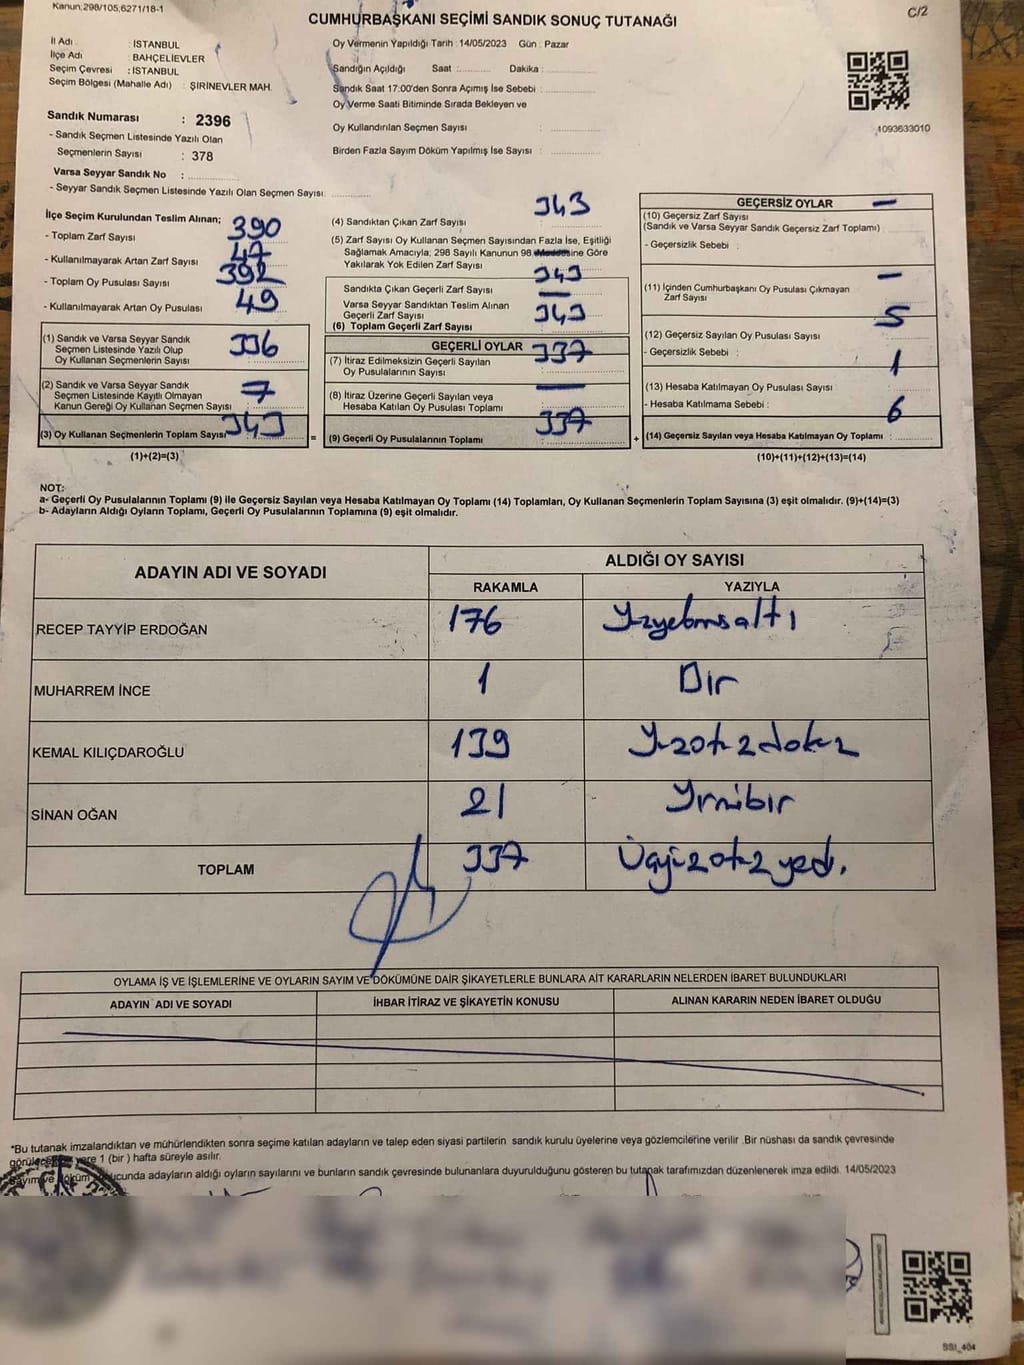 Kanun:298/105,6271/18-1
C/2
CUMHURBAŞKANI SEÇİMİ SANDIK SONUÇ TUTANAĞI
İl Adı : İSTANBUL
İlçe Adı : BAHÇELİEVLER
Seçim Çevresi : İSTANBUL
Seçim Bölgesi (Mahalle Adı) : ŞİRİNEVLER MAH.
Oy Vermenin Yapıldığı Tarih : 14/05/2023 Gün : Pazar
Sandığın Açıldığı Saat : Dakika :
Sandık Saat 17:00'den Sonra Açımış İse Sebebi :
Oy Verme Saati Bitiminde Sırada Bekleyen ve
Oy Kullandırılan Seçmen Sayısı :
Birden Fazla Sayım Döküm Yapılmış İse Sayısı :
1093633010
Sandık Numarası : 2396
- Sandık Seçmen Listesinde Yazılı Olan
Seçmenlerin Sayısı : 378
Varsa Seyyar Sandık No :
- Seyyar Sandık Seçmen Listesinde Yazılı Olan Seçmen Sayısı:
İlçe Seçim Kurulundan Teslim Alınan;
- Toplam Zarf Sayısı 390
- Kullanılmayarak Artan Zarf Sayısı 47
- Toplam Oy Pusulası Sayısı 392
- Kullanılmayarak Artan Oy Pusulası 49
(1) Sandık ve Varsa Seyyar Sandık
Seçmen Listesinde Yazılı Olup
Oy Kullanan Seçmenlerin Sayısı 336
(2) Sandık ve Varsa Seyyar Sandık
Seçmen Listesinde Kayıtlı Olmayan
Kanun Gereği Oy Kullanan Seçmen Sayısı 7
(3) Oy Kullanan Seçmenlerin Toplam Sayısı 343
(1)+(2)=(3)
(4) Sandıktan Çıkan Zarf Sayısı 343
(5) Zarf Sayısı Oy Kullanan Seçmen Sayısından Fazla İse, Eşitliği
Sağlamak Amacıyla; 298 Sayılı Kanunun 98. Maddesine Göre
Yakılarak Yok Edilen Zarf Sayısı
Sandıkta Çıkan Geçerli Zarf Sayısı 343
Varsa Seyyar Sandıktan Teslim Alınan
Geçerli Zarf Sayısı —
(6) Toplam Geçerli Zarf Sayısı 343
GEÇERLİ OYLAR
(7) İtiraz Edilmeksizin Geçerli Sayılan
Oy Pusulalarının Sayısı 337
(8) İtiraz Üzerine Geçerli Sayılan veya
Hesaba Katılan Oy Pusulaları Toplamı —
= (9) Geçerli Oy Pusulalarının Toplamı 337
GEÇERSİZ OYLAR
(10) Geçersiz Zarf Sayısı —
(Sandık ve Varsa Seyyar Sandık Geçersiz Zarf Toplamı)
- Geçersizlik Sebebi :
(11) İçinden Cumhurbaşkanı Oy Pusulası Çıkmayan
Zarf Sayısı —
(12) Geçersiz Sayılan Oy Pusulası Sayısı 5
- Geçersizlik Sebebi :
(13) Hesaba Katılmayan Oy Pusulası Sayısı 1
- Hesaba Katılmama Sebebi :
+ (14) Geçersiz Sayılan veya Hesaba Katılmayan Oy Toplamı : 6
(10)+(11)+(12)+(13)=(14)
NOT:
a- Geçerli Oy Pusulalarının Toplamı (9) ile Geçersiz Sayılan veya Hesaba Katılmayan Oy Toplamı (14) Toplamları, Oy Kullanan Seçmenlerin Toplam Sayısına (3) eşit olmalıdır. (9)+(14)=(3)
b- Adayların Aldığı Oyların Toplamı, Geçerli Oy Pusulalarının Toplamına (9) eşit olmalıdır.
ADAYIN ADI VE SOYADI
ALDIĞI OY SAYISI
RAKAMLA YAZIYLA
RECEP TAYYİP ERDOĞAN 176 Yüzyetmişaltı
MUHARREM İNCE 1 Bir
KEMAL KILIÇDAROĞLU 139 Yüzotuzdokuz
SİNAN OĞAN 21 Yirmibir
TOPLAM 337 Üçyüzotuzyedi.
OYLAMA İŞ VE İŞLEMLERİNE VE OYLARIN SAYIM VE DÖKÜMÜNE DAİR ŞİKAYETLERLE BUNLARA AİT KARARLARIN NELERDEN İBARET BULUNDUKLARI
ADAYIN ADI VE SOYADI İHBAR İTİRAZ VE ŞİKAYETİN KONUSU ALINAN KARARIN NEDEN İBARET OLDUĞU
*Bu tutanak imzalandıktan ve mühürlendikten sonra seçime katılan adayların ve talep eden siyasi partilerin sandık kurulu üyelerine veya gözlemcilerine verilir .Bir nüshası da sandık çevresinde
yere 1 (bir ) hafta süreyle asılır.
adayların aldığı oyların sayılarını ve bunların sandık çevresinde bulunanlara duyurulduğunu gösteren bu tutanak tarafımızdan düzenlenerek imza edildi. 14/05/2023
SSI_404